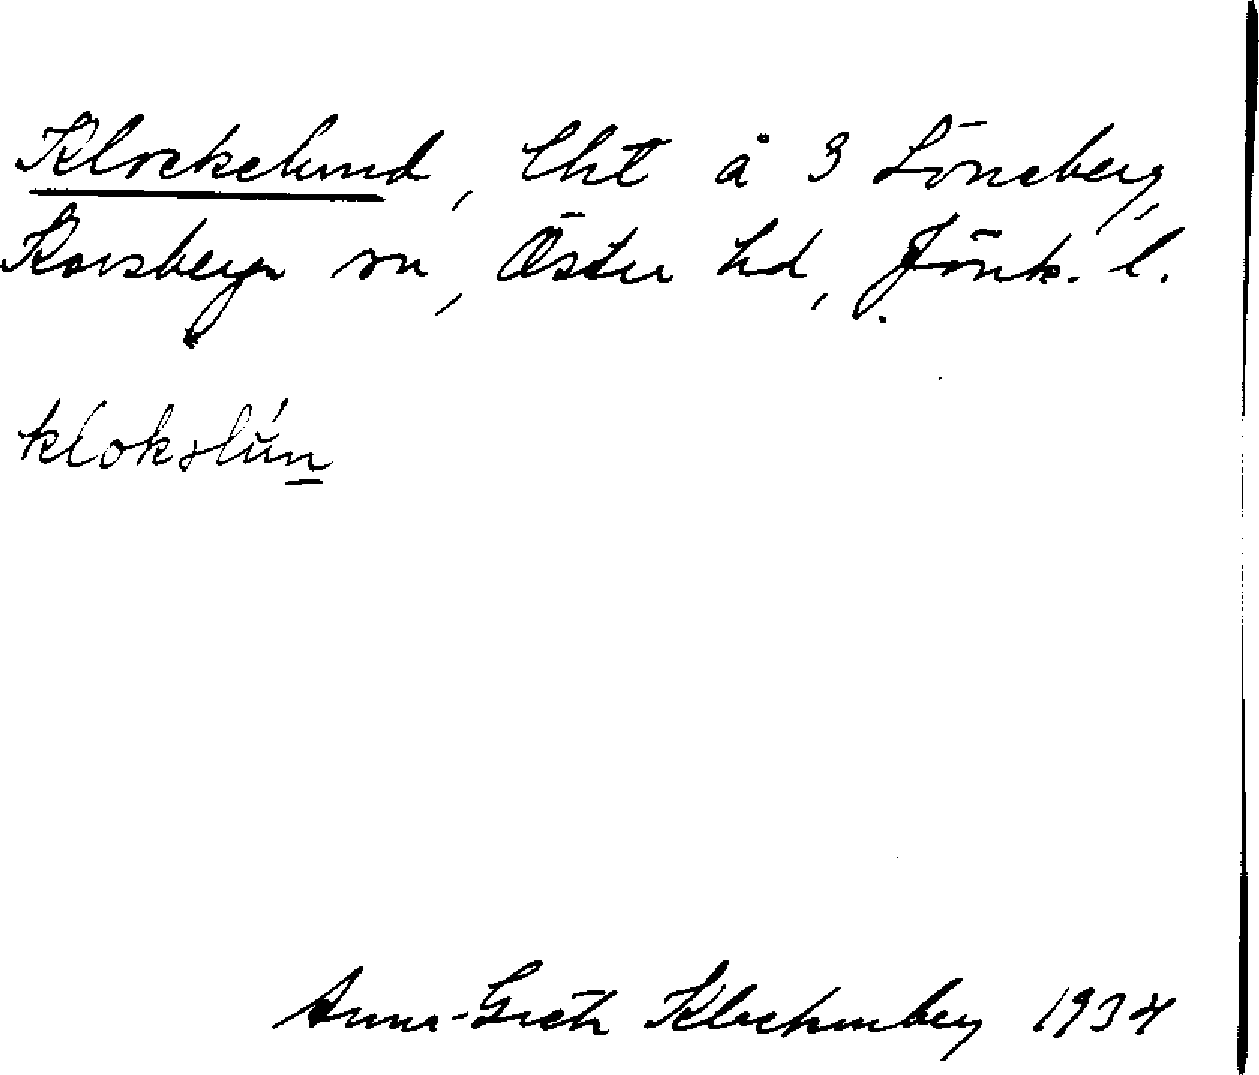 Klockelund, lht å 3 Löneberg,
Korsberga sn, Östra hd, Jönk. l.
klokəlún
Anna-Greta Klockenberg 1934